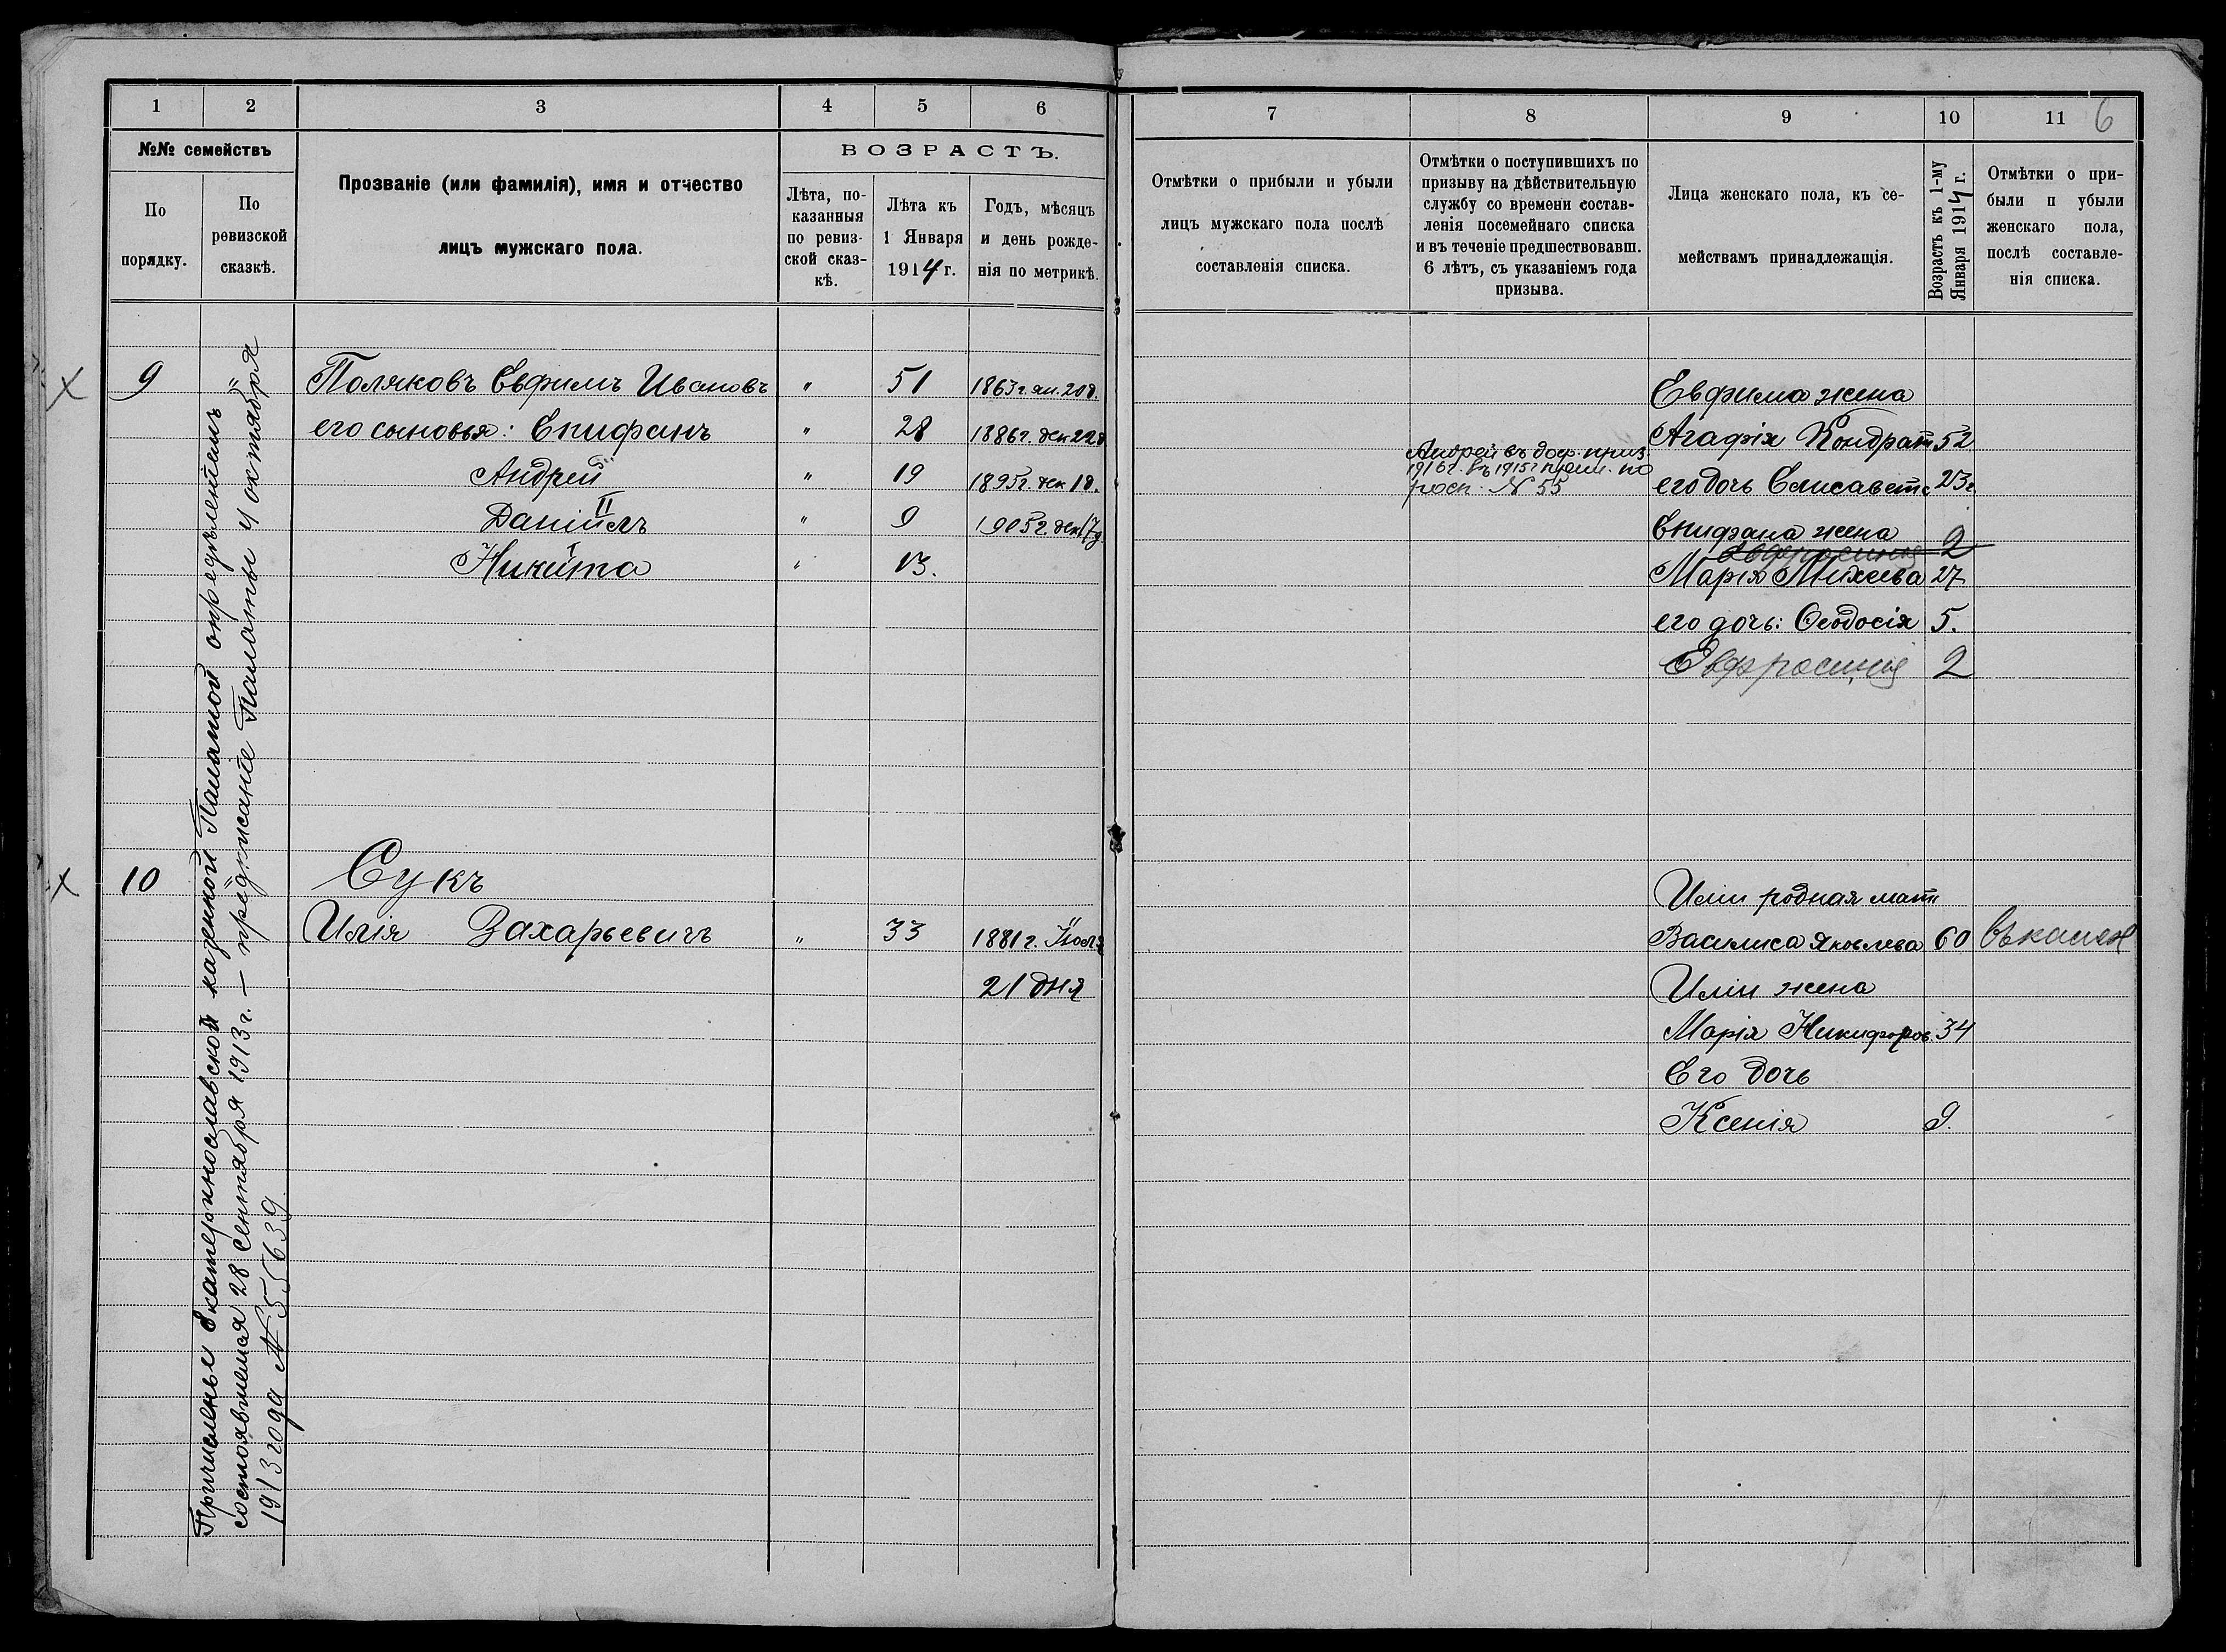 1 2 3 4 5 6
№№ семействъ
По порядку.
По ревизской сказкѣ.
Прозваніе (или фамилія), имя и отчество
лицъ мужскаго пола.
ВОЗРАСТЪ.
Лѣта, по-
казанныя
по ревиз-
ской сказ-
кѣ.
Лѣта къ
1 Января
1914 г.
Годъ, мѣсяцъ
и день рожде-
нія по метрикѣ.
Причислены Екатеринославской казенной Палатой опредѣленіемъ
состоявшемся 28 сентября 1913 г. — предписаніе Палаты 4 октября
1913 года № 55639
9 Поляковъ Евфимъ Ивановъ " 51 1863 г. ян. 20 д.
его сыновья: Епифанъ " 28 1886 г. дек 22 д
Андрей " 19 1895 г. дек 18.
II
Даніилъ " 9 1905 г. дек 17 д
I
Никита " 13.
10 Сукъ
Илія Захарьевичъ " 33 1881 г. Іюля
21 дня
7 8 9 10 11 6
Отмѣтки о прибыли и убыли
лицъ мужскаго пола послѣ
составленія списка.
Отмѣтки о поступившихъ по
призыву на дѣйствительную
службу со времени состав-
ленія посемейнаго списка
и въ теченіе предшествовавш.
6 лѣтъ, съ указаніемъ года
призыва.
Лица женскаго пола, къ се-
мействамъ принадлежащія.
Возрастъ къ 1-му
Января 1914 г.
Отмѣтки о при-
были и убыли
женскаго пола,
послѣ составле-
нія списка.
Андрей въ доср. приз.
1916 г. въ 1915 г. по
росп. № 55
Евфима жена
Агафія Кондрат 52
его дочь Елисавета 23 г.
Епифана жена
Евфросинія 2
Марія Михеева 27
его дочь: Ѳеодосія 5.
Евфросинія 2
Иліи родная мать
Василиса Яковлева 60
Иліи жена
Марія Никифоров. 34
Его дочь
Ксенія 9.